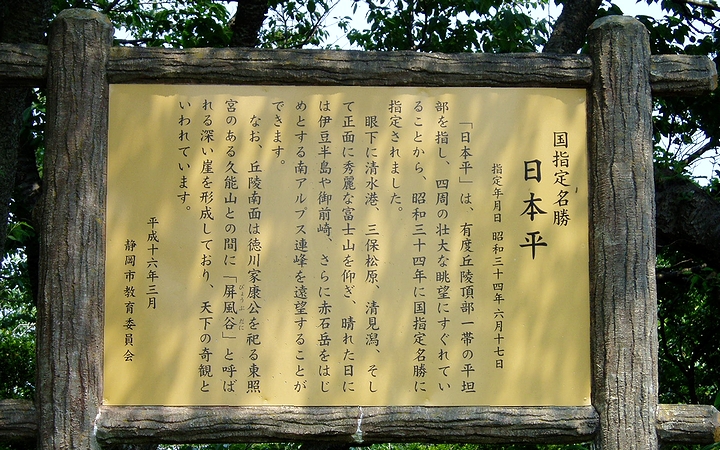 国指定名勝
日本平
指定年月日 昭和三十四年六月十七日
「日本平」は、有度丘陵頂部一帯の平坦
部を指し、四周の壮大な眺望にすぐれてい
ることから、昭和三十四年に国指定名勝に
指定されました。
眼下に清水港、三保松原、清見潟、そし
て正面に秀麗な富士山を仰ぎ、晴れた日に
は伊豆半島や御前崎、さらに赤石岳をはじ
めとする南アルプス連峰を遠望することが
できます。
なお、丘陵南面は徳川家康公を祀る東照
宮のある久能山との間に「屏風谷」と呼ば
びょうぶ だに
れる深い崖を形成しており、天下の奇観と
いわれています。
平成十六年三月
静岡市教育委員会